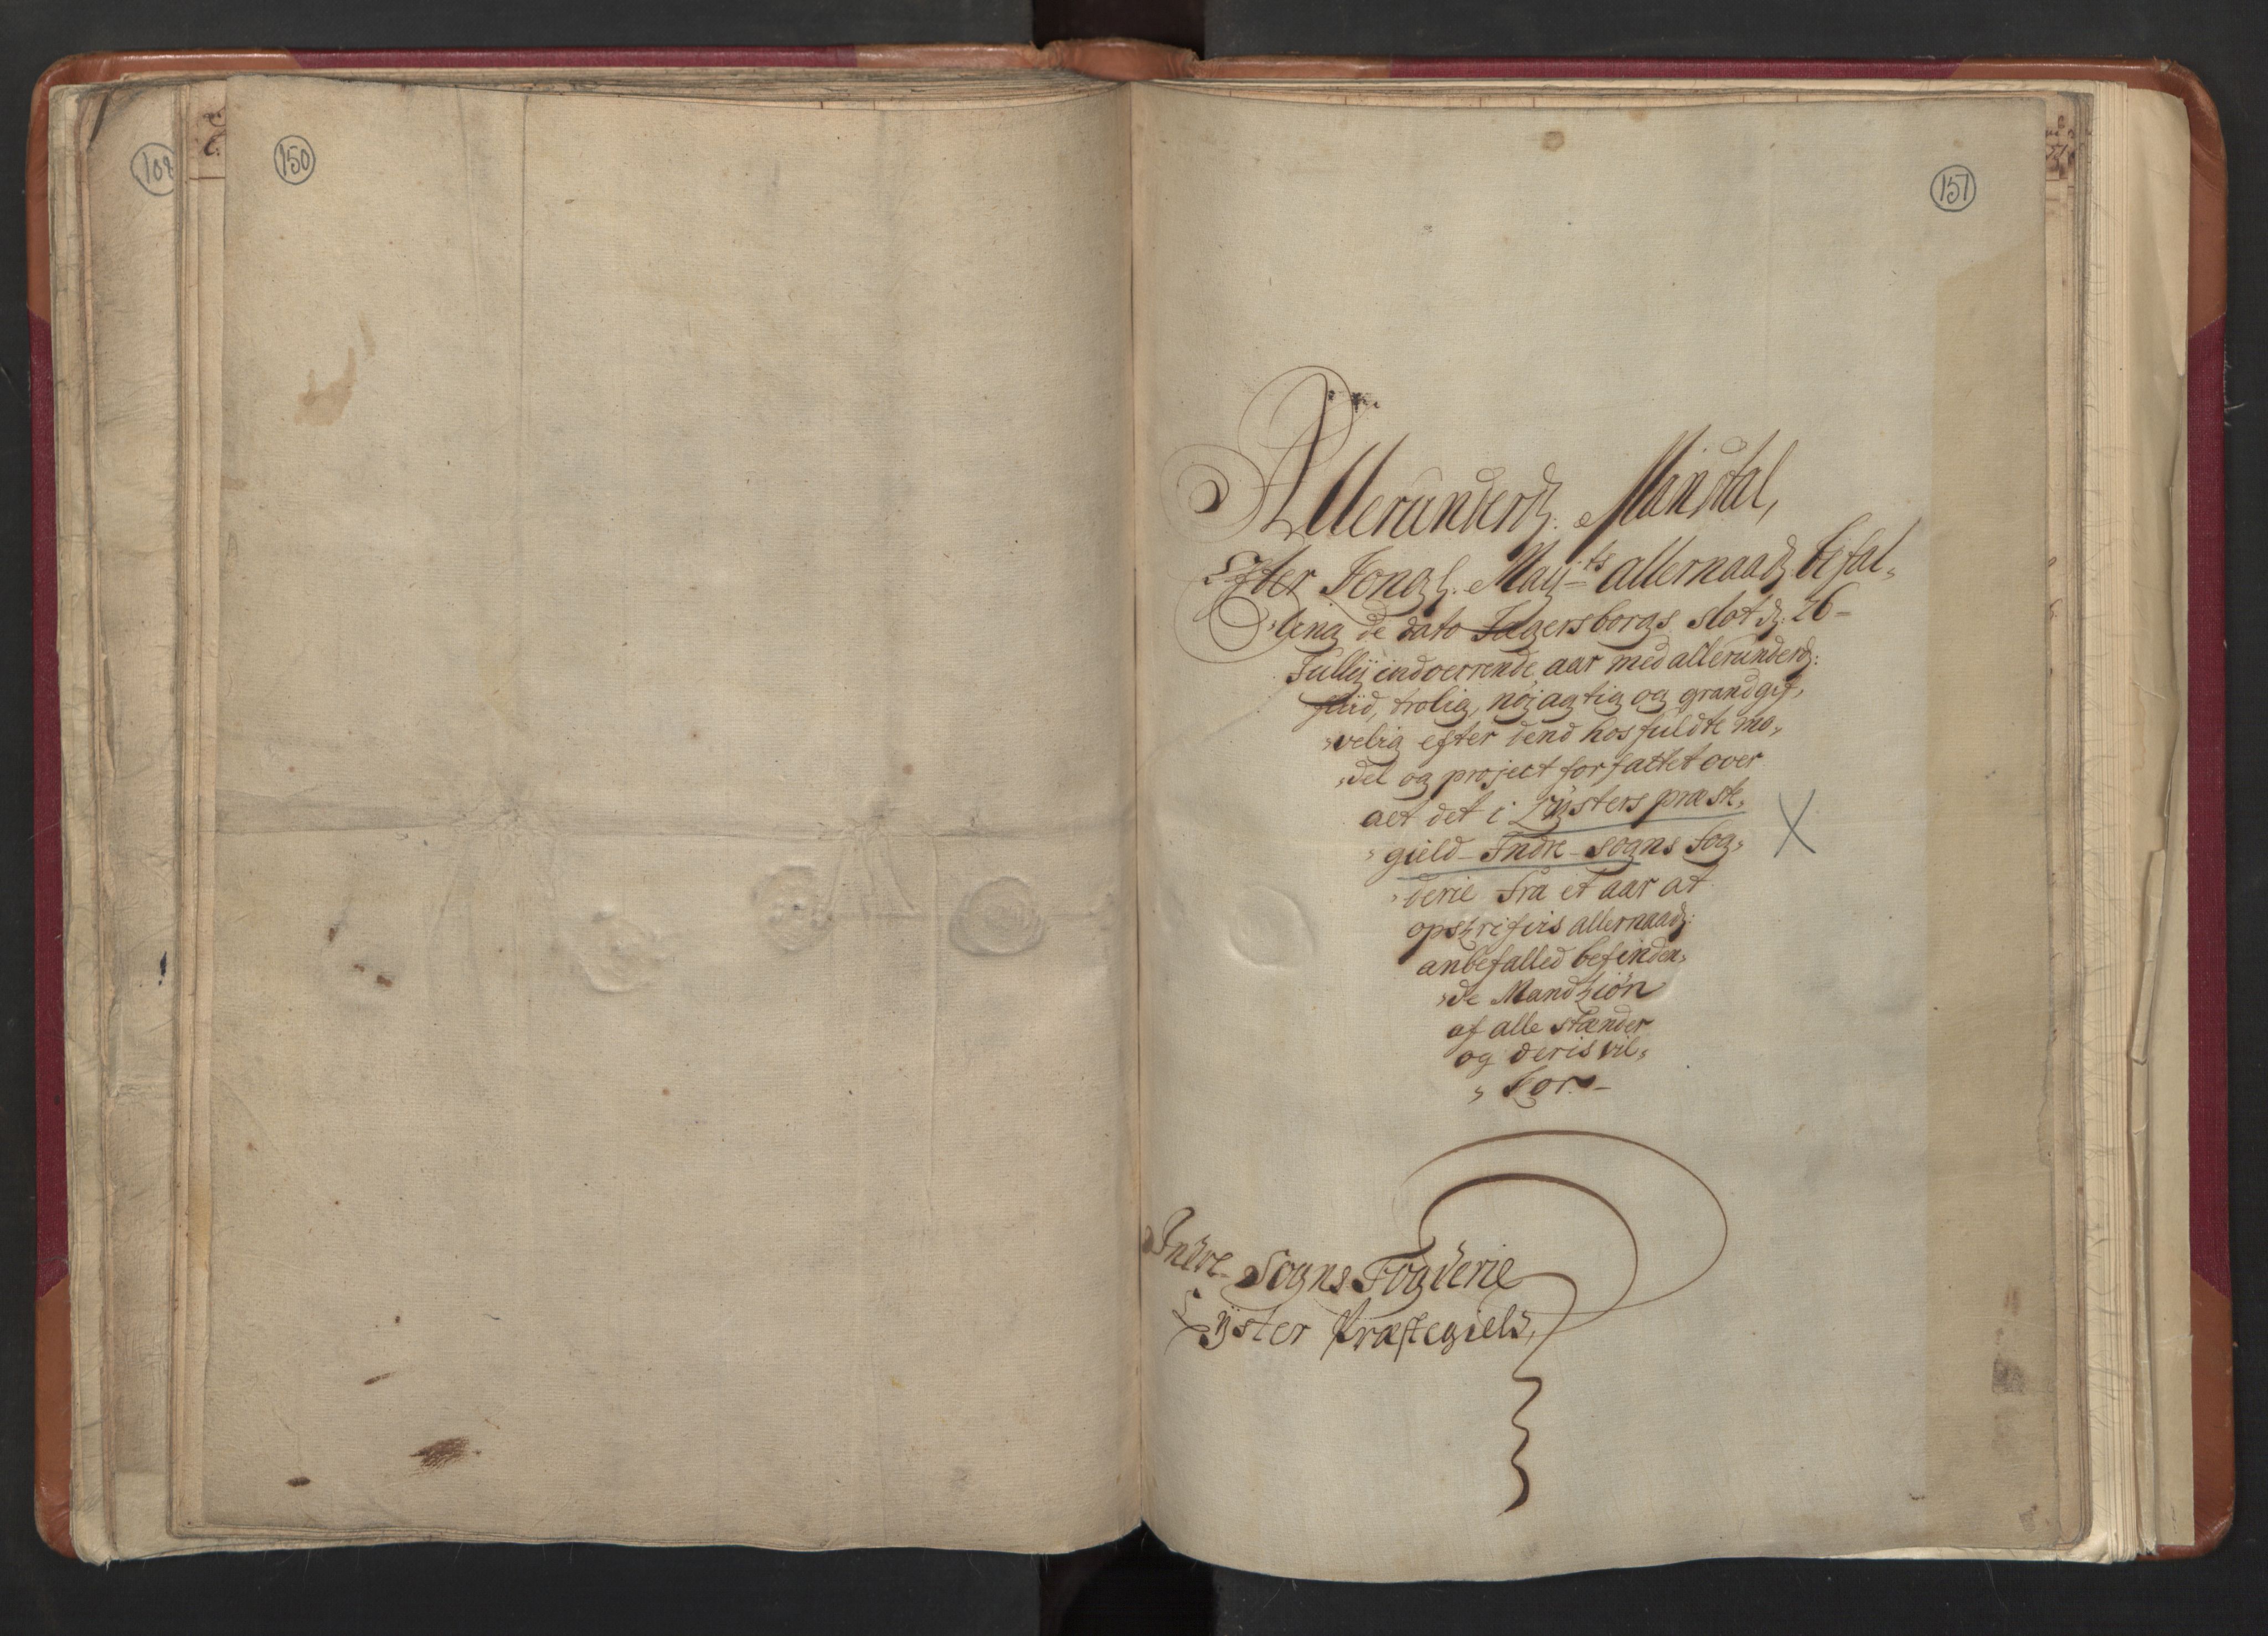 108
150
151
Allerunderd: Manstal,
Efter Kongl. Mayts allernaad befal„
„ling de dato Jægersborgs slot d: 26 –
Jullÿ indværrende aar med allerunderd:
fliid, trolig, nøjagtig og grandgif„
„velig efter dend hosfuldte mo„
„del og project forfattet over
alt det i Lÿsters præste„
„gield – Indre – sogns fog„
„derie fra et aar at
opskrifvis allernaad:
anbefalled befinden„
„de Mandkiøn
af alle stænder
og deris vil„
„kor –
Indre – Sogns Fogderie
Lÿster Præstegield,